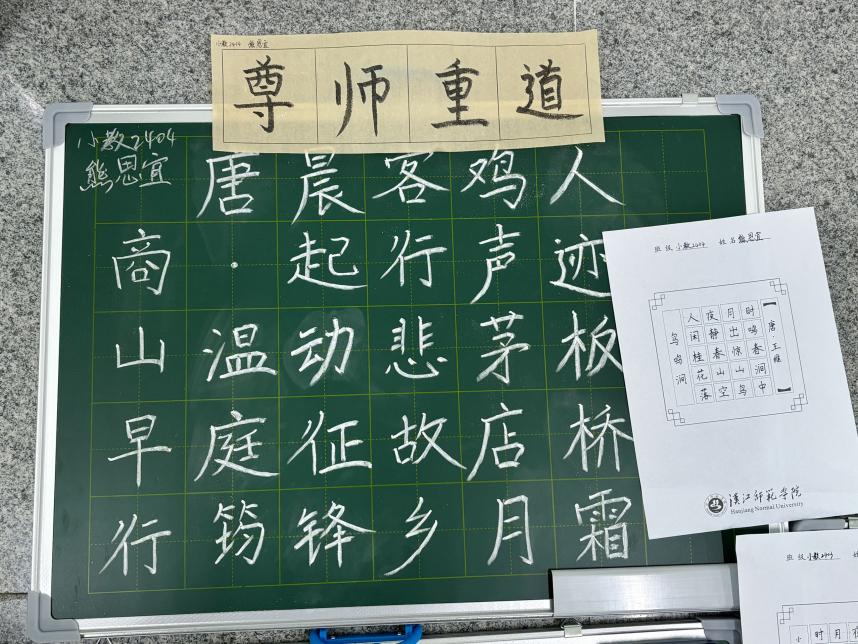 小教2404 熊恩宜
尊师重道
小教2404
熊恩宜
商山早行
唐·温庭筠
晨起动征锋
客行悲故乡
鸡声茅店月
人迹板桥霜
班级 小教2404 姓名 熊恩宜
鸟鸣涧
人闲桂花落
夜静春山空
月出惊山鸟
时鸣春涧中
【唐 王维】
汉江师范学院
Hanjiang Normal University
班级 小教2404 姓
小 时 月